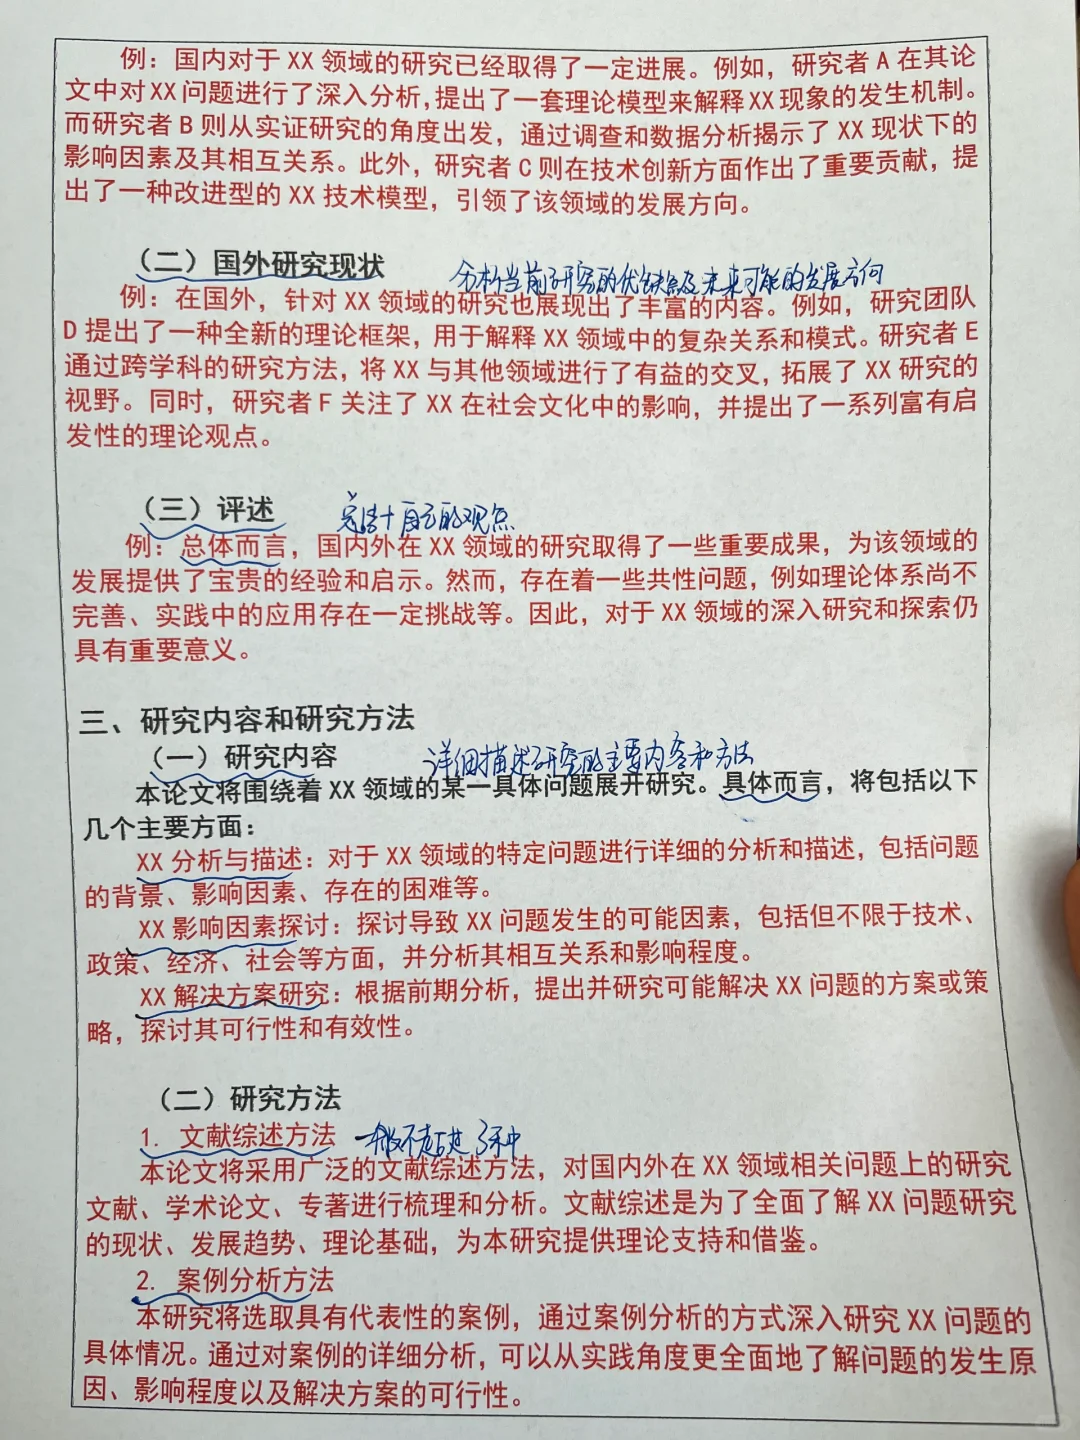 例：国内对于 XX 领域的研究已经取得了一定进展。例如，研究者 A 在其论
文中对 XX 问题进行了深入分析，提出了一套理论模型来解释 XX 现象的发生机制。
而研究者 B 则从实证研究的角度出发，通过调查和数据分析揭示了 XX 现状下的
影响因素及其相互关系。此外，研究者 C 则在技术创新方面作出了重要贡献，提
出了一种改进型的 XX 技术模型，引领了该领域的发展方向。
（二）国外研究现状
分析当前研究的优缺点及未来可能的发展方向
例：在国外，针对 XX 领域的研究也展现出了丰富的内容。例如，研究团队
D 提出了一种全新的理论框架，用于解释 XX 领域中的复杂关系和模式。研究者 E
通过跨学科的研究方法，将 XX 与其他领域进行了有益的交叉，拓展了 XX 研究的
视野。同时，研究者 F 关注了 XX 在社会文化中的影响，并提出了一系列富有启
发性的理论观点。
（三）评述
总结+自己的观点
例：总体而言，国内外在 XX 领域的研究取得了一些重要成果，为该领域的
发展提供了宝贵的经验和启示。然而，存在着一些共性问题，例如理论体系尚不
完善、实践中的应用存在一定挑战等。因此，对于 XX 领域的深入研究和探索仍
具有重要意义。
三、研究内容和研究方法
（一）研究内容
详细描述研究的主要内容和方法
本论文将围绕着 XX 领域的某一具体问题展开研究。具体而言，将包括以下
几个主要方面：
XX 分析与描述：对于 XX 领域的特定问题进行详细的分析和描述，包括问题
的背景、影响因素、存在的困难等。
XX 影响因素探讨：探讨导致 XX 问题发生的可能因素，包括但不限于技术、
政策、经济、社会等方面，并分析其相互关系和影响程度。
XX 解决方案研究：根据前期分析，提出并研究可能解决 XX 问题的方案或策
略，探讨其可行性和有效性。
（二）研究方法
1. 文献综述方法
一般不超过3种
本论文将采用广泛的文献综述方法，对国内外在 XX 领域相关问题上的研究
文献、学术论文、专著进行梳理和分析。文献综述是为了全面了解 XX 问题研究
的现状、发展趋势、理论基础，为本研究提供理论支持和借鉴。
2. 案例分析方法
本研究将选取具有代表性的案例，通过案例分析的方式深入研究 XX 问题的
具体情况。通过对案例的详细分析，可以从实践角度更全面地了解问题的发生原
因、影响程度以及解决方案的可行性。